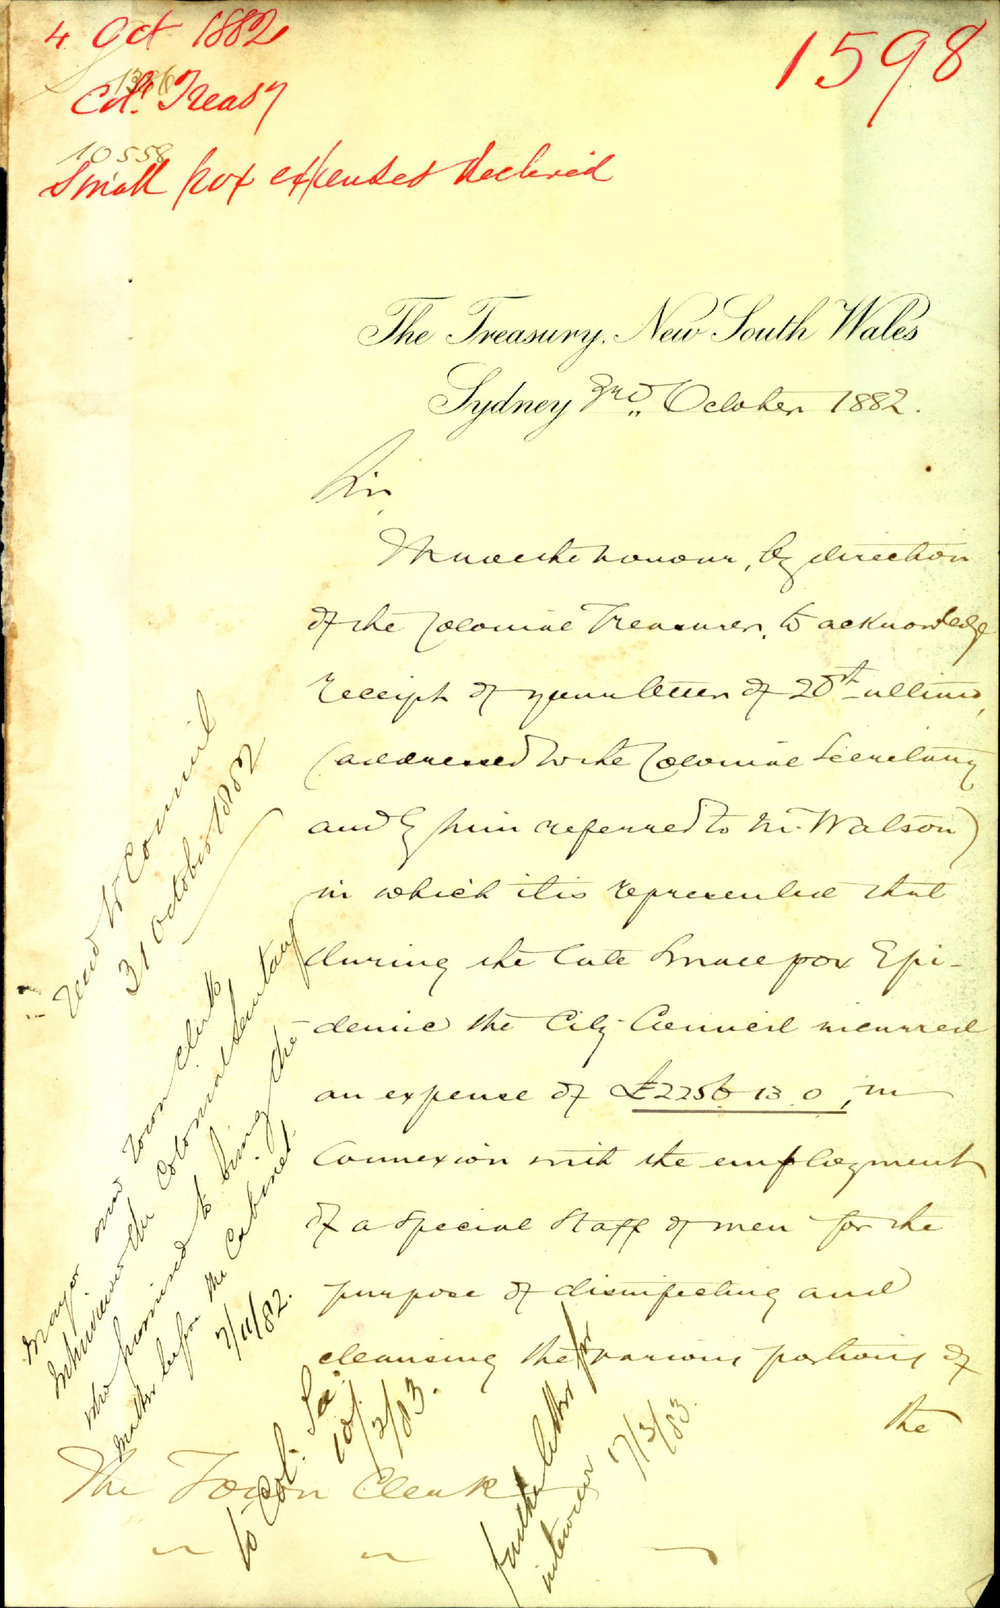 4 Oct 1882
1598
Col. Treasy
10558
Small pox expenses declined
The Treasury, New South Wales
Sydney 3rd October 1882.
Sir,
I have the honour, by direction
of the Colonial Treasurer, to acknowledge
receipt of your letter of 20th ultimo,
(addressed to the Colonial Secretary
and by him referred to Mr. Watson)
in which it is represented that
during the late Small pox Epi-
demic the City Council incurred
an expense of £2256 13 0, in
Connexion with the employment
of a Special Staff of men for the
purpose of disinfecting and
cleansing the various portions of
the
The Town Clerk
Read to Council
31 October 1882
Mayor and Town Clerk
interviewed the Colonial Secretary
who promised to bring the
matter before the Cabinet
7/11/82.
to Col. Sec.
10/2/83.
further letter for
interview 17/3/83.